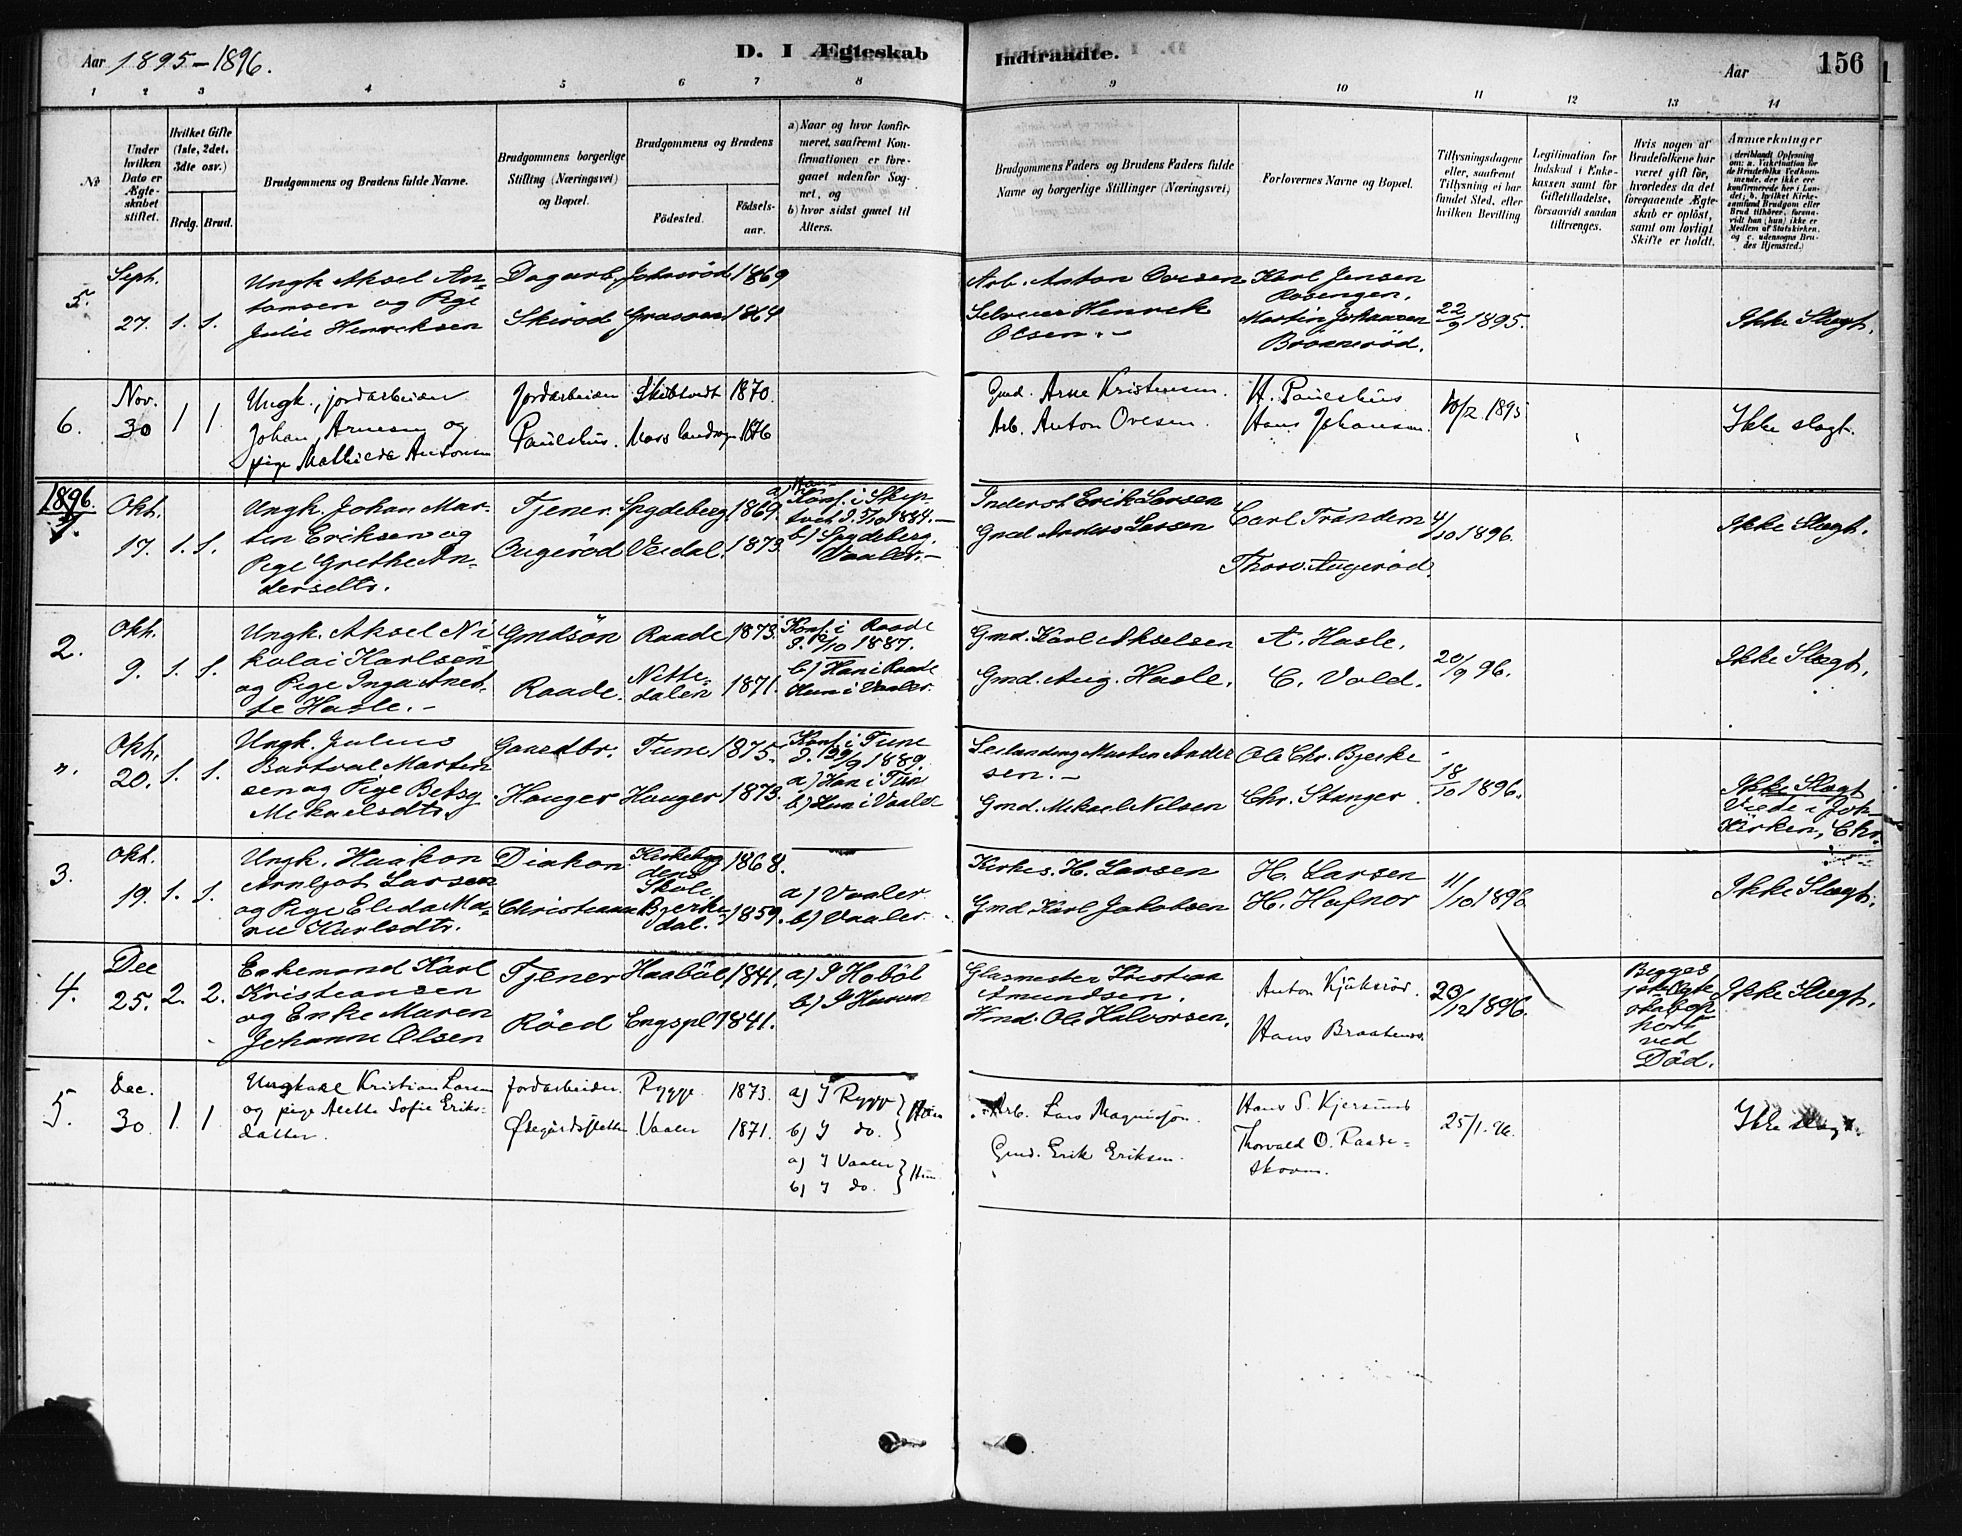 Aar 1895-1896.
D. I Ægteskab
Indtraadte.
Aar
156
1 2 3 4 5 6 7 8
9 10 11 12 13 14
№
Under hvilken Dato er Ægteskabet stiftet.
Hvilket Gifte (1ste, 2det, 3die osv.)
Brdg. Brud.
Brudgommens og Brudens fulde Navne.
Brudgommens borgerlige Stilling (Næringsvei) og Bopæl.
Brudgommens og Brudens
Födested.
Födselsaar.
a) Naar og hvor konfirmeret, saafremt Konfirmationen er foregaaet udenfor Sognet, og
b) hvor sidst gaaet til Alters.
Brudgommens Faders og Brudens Faders fulde Navne og borgerlige Stillinger (Næringsvei)
Forlovernes Navne og Bopæl.
Tillysningsdagene eller, saafremt Tillysning ei har fundet Sted, efter hvilken Bevilling
Legitimation for Indskud i Enkekassen samt for Giftetilladelse, forsaavidt saadan tiltrænges.
Hvis nogen af Brudefolkene har været gift för, hvorledes da det foregaaende Ægteskab er oplöst, samt om lovligt Skifte er holdt.
Anmærkninger
5. Sept. 27. 1. 1.
Ungk. Aksel An-
tonsen og Pige
Julie Henreksen
Dagarb.
Skiröd
1869
1864
Arb. Anton Ovesen
Henrek
Olsen.
Karl Jensen
Rosengen.
Martin Johansen
22/9 1895.
Ikke Slegt.
6. Nov. 30 1 1
Ungk., jordarbeider
Johan Arnesen og
pige Mathilde Antonsen
Jordarbeider
Paulshus.
Skibtvedt 1870.
1876
Gmd. Arne Kristensen.
Arb. Anton Ovesen.
H. Paulshus
Hans Johansen
1895
Ikke slegt.
1896.
1. Okt. 17. 1. 1.
Ungk. Johan Mar-
tin Eriksen og
Pige Grethe An-
dersdtr.
Tjener
Spydeberg 1869.
Veidal. 1873.
a) Konf. i Skip-
tvet d. 5/10 1884.
b) i Spydeberg.
Vaaler.
Inderst Erik Larsen
Gmd Anders Larsen
Carl Trandem
Thorv. Augeröd.
4/10 1896.
Ikke Slegt.
2. Okt. 9. 1. 1.
Ungk. Aksel Ni
kolai Karlsen
og Pige Inga Anet-
te Hasle.
Gmdsön
Raade.
Raade 1873.
Nitte-
dalen 1871.
Konf. i Raade
/10 1887.
b) Han i Raade
Hun i Vaaler.
Gmd. Karl Akselsen
Gmd. Aug. Hasle.
A. Hasle.
C. Vold.
20/9 96.
Ikke Slegt.
". Okt. 20. 1. 1.
Ungk. Julius
Bartval Marten
sen og Pige Betsy
Mekaelsdtr.
Gaardbr.
Hauger
Tune 1875.
Hauger 1873.
Konf. i Tune
d. 29/9 1889.
a) Han i Tun
b) Hun i Vaaler
Selveiendeg Marten Ander
sen.
Gmd. Mikael Nilsen
Ole Chr. Bjerke
Chr. Stanger
18/10 1896.
Ikke Slegt
Viede i Joh-
Kirken, Chr.
3. Okt. 19. 1. 1.
Ungk. Haakon
Arnljot Larsen
og Pige Elida Ma-
rie Karlsdtr.
Diakon
Christiania
Kirkebyg
dens
Skole 1868.
Bjerke-
dal. 1859.
a) Vaaler.
b) Vaaler.
Kirkes. H. Larsen
Gmd. Karl Jakobsen
H. Larsen
H. Hafnor
11/10 1896
Ikke Slegt.
4. Dec 25. 2. 2.
Enkemand Karl
Kristiansen
og Enke Maren
Johanne Olsen
Tjener
Röed
Haaböl 1841.
Engspl 1841.
a) I Hoböl
b) I
Glasmester Kristian
Amundsen.
Hmd. Ole Halvorsen.
Anton Kjöksröd.
Hans Braatenes.
20/12 1896.
Begges
ved
Död.
Ikke Slegt.
5. Dec. 30. 1. 1
Ungkarl Kristian Larsen
og pige Alette Sofie Eriks-
datter.
Jordarbeider.
Ødegårdssletten
Rygge 1873.
Vaaler 1871.
a) I Rygge } Han
b) I do.
a) I Vaaler } Hun
b) I do.
Arb. Lars Magnussøn.
Gmd. Erik Eriksen.
Hans S. Kjersund
Thorvald O. Raade-
skoven.
25/1.
Ikke slegt.